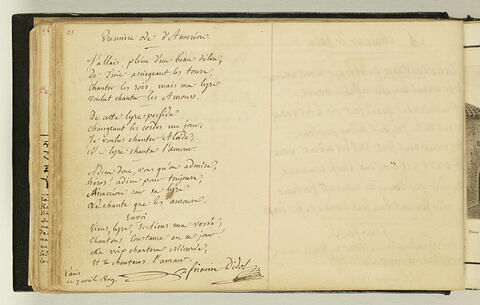 39
Première ode d'Anacréon
J'allais, plein d'un beau délire,
De Troie assiégeant les tours,
Chanter les rois, mais ma lyre
Voulut chanter les Amours.
De cette lyre perfide
Changeant les cordes un jour,
Je voulus chanter Alcide,
Et lyre chanta l'amour.
Adieu donc, vous qu'on admire,
Héros! adieu pour toujours,
Anacréon sur sa lyre
Ne chante que les amours.
Envoi
Viens, lyre, soutiens ma verve;
Chantons Constance en ce jour;
Ma voix chantera Minerve,
Et tu chanteras l'amour.
Paris
ce 7 avril 1809.
Firmin Didot